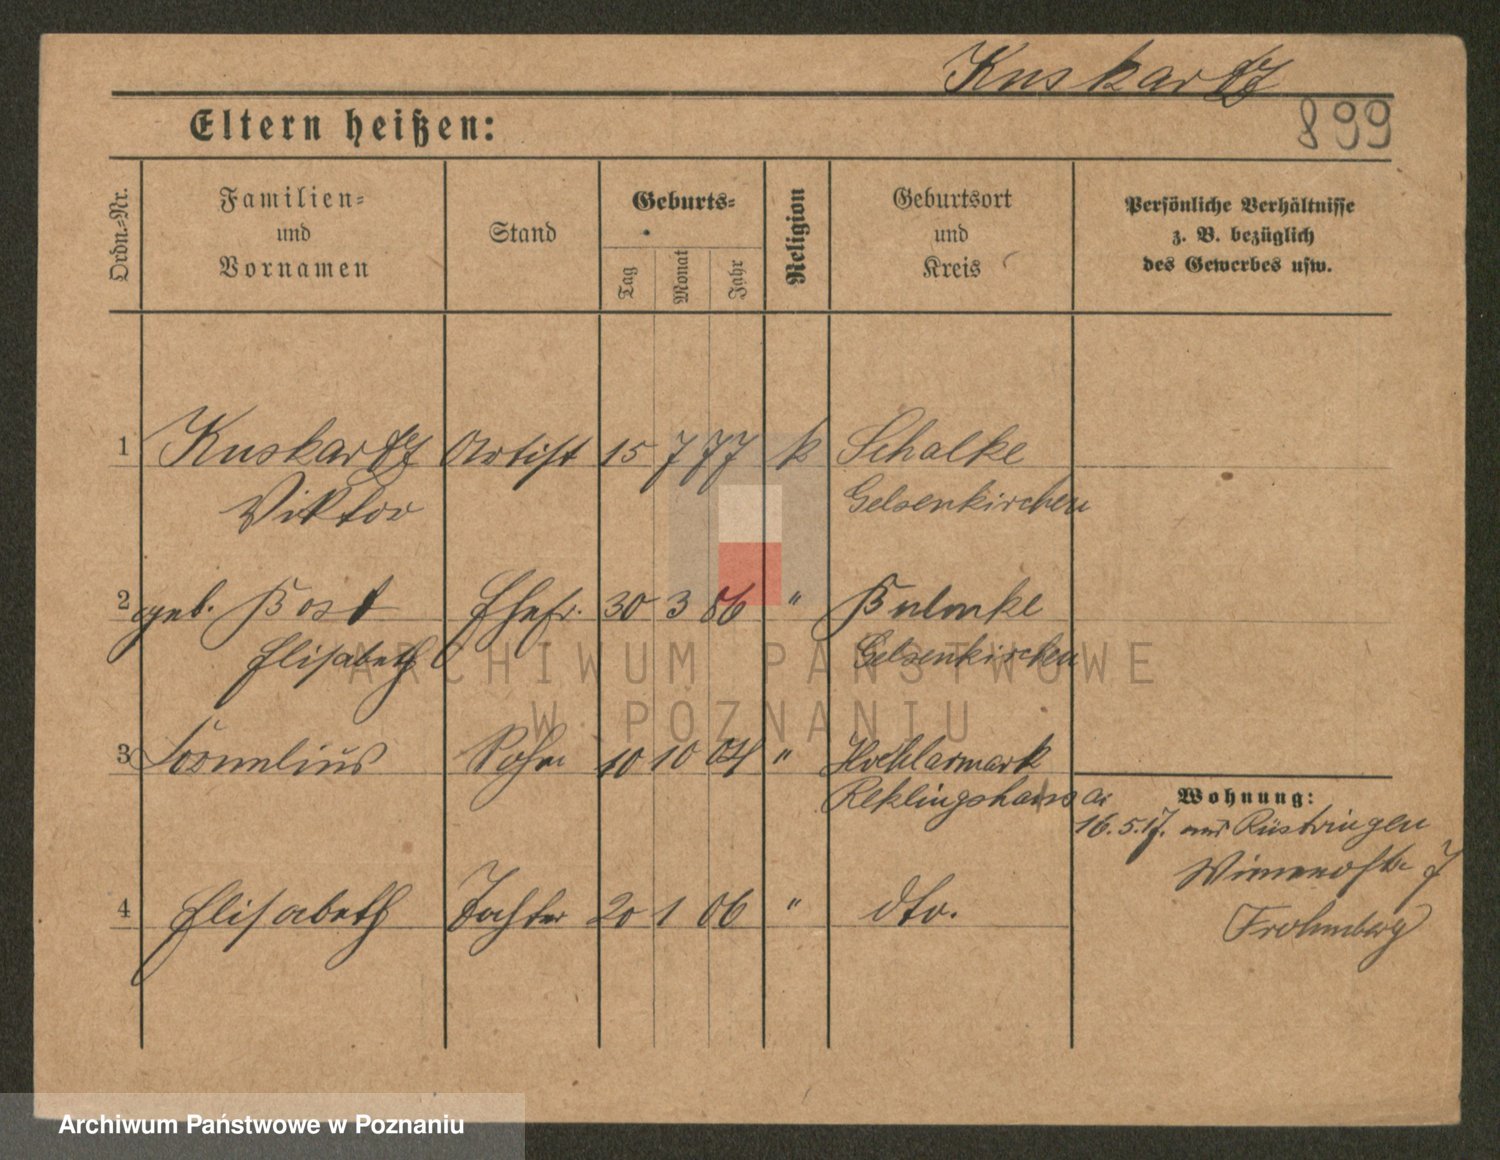 Kuskartz
899
Eltern heißen:
Ordn.-Nr.
Familien-
und
Vornamen
Stand
Geburts-
Tag
Monat
Jahr
Religion
Geburtsort
und
Kreis
Persönliche Verhältnisse
z. B. bezüglich
des Gewerbes usw.
1 Kuskartz Artist 15 7 77 k Schalke
Viktor Gelsenkirchen
2 geb. Bost Ehefr. 30 3 86 " Bulmke
Elisabeth Gelsenkirchen
3 Kornelius Sohn 10 10 04 " Hochlarmark
Reklingshausen
4 Elisabeth Tochter 20 1 06 " dto.
Wohnung:
16.5.17. aus Rüstringen
7
Frohnberg
ARCHIWUM PAŃSTWOWE
W POZNANIU
Archiwum Państwowe w Poznaniu